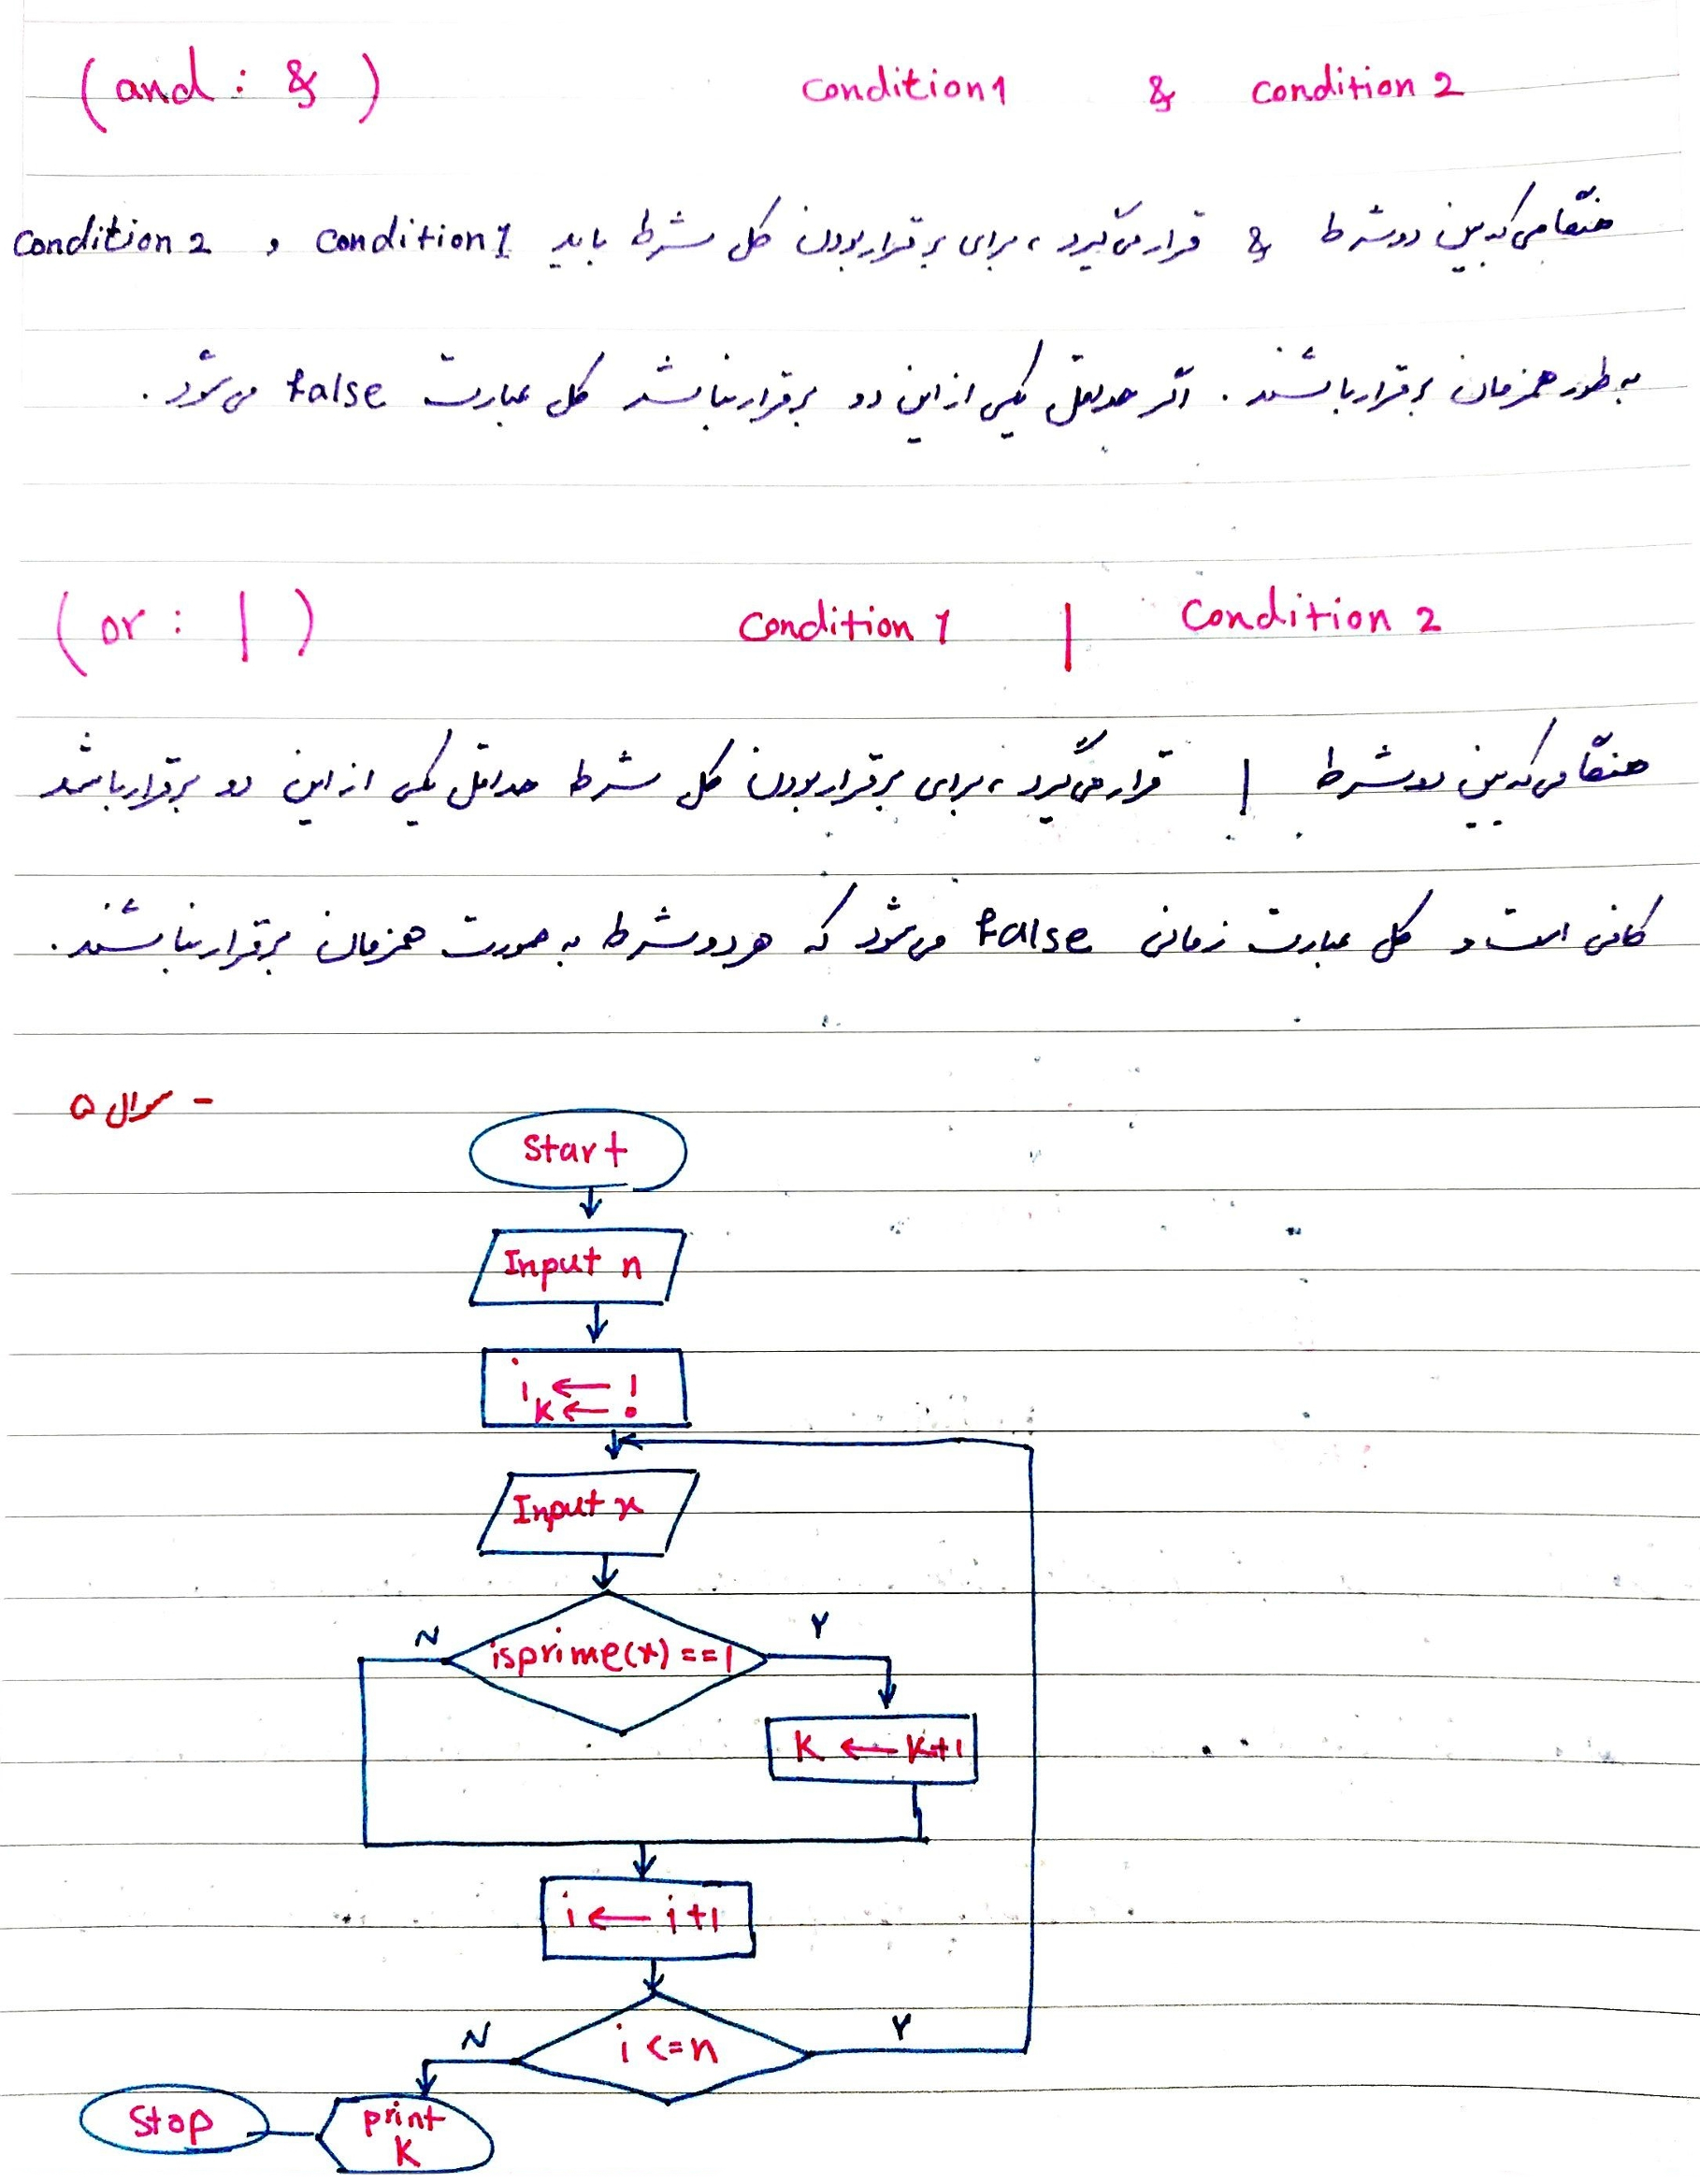 (and : &) condition1 & condition 2
هنگامی که بین دو شرط & قرار می‌گیرد، برای برقرار بودن کل شرط باید condition1 و condition 2
به طور همزمان برقرار باشند. اگر حداقل یکی از این دو برقرار نباشد کل عبارت false می‌شود.
(or : |) condition 1 | condition 2
هنگامی که بین دو شرط | قرار می‌گیرد، برای برقرار بودن کل شرط حداقل یکی از این دو برقرار باشد
کافی است و کل عبارت زمانی false می‌شود که هر دو شرط به صورت همزمان برقرار نباشند.
- سوال ۵
Start
Input n
i ← 1
k ← ۰
Input x
isprime(x)==1
N
Y
k ← k+1
i ← i+1
i <=n
N
Y
print
k
Stop